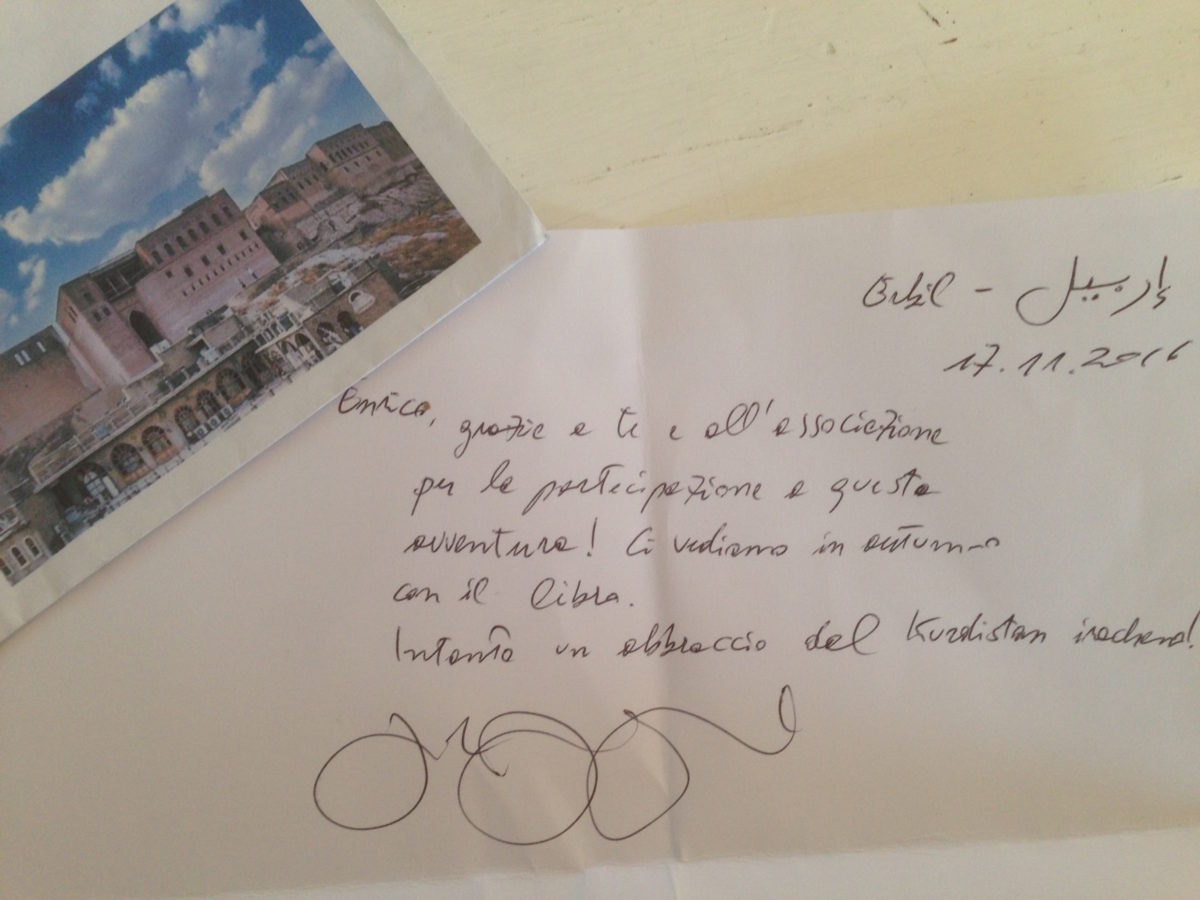 Erbil - إربيل
17.11.2016
Enrico, grazie a te e all'associazione
per la partecipazione a questa
avventura! Ci vediamo in autunno
con il libro.
Intanto un abbraccio dal Kurdistan iracheno!